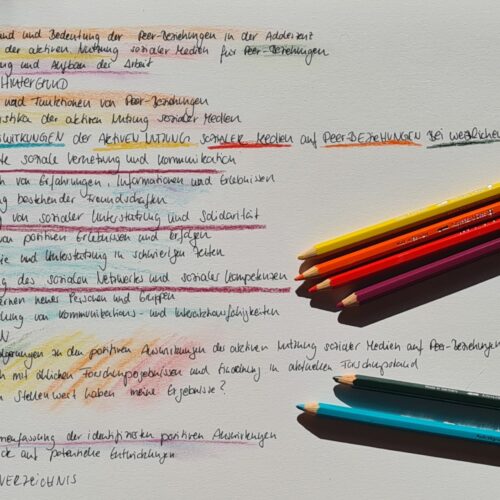 und Bedeutung der Peer-Beziehungen in der Adoleszenz
der aktiven Nutzung sozialer Medien für Peer-Beziehungen
und Aufbau der Arbeit
HINTERGRUND
und Funktionen von Peer-Beziehungen
der aktiven Nutzung sozialer Medien
SWIRKUNGEN der AKTIVEN NUTZUNG SOZIALER MEDIEN auf PEER-BEZIEHUNGEN BEI WEIBLICHEN
te soziale Vernetzung und Kommunikation
ch von Erfahrungen, Informationen und Erlebnissen
ng bestehender Freundschaften
ng von sozialer Unterstützung und Solidarität
von positiven Erlebnissen und Erfolgen
ie und Unterstützung in schwierigen Zeiten
ng des sozialen Netzwerks und sozialer Kompetenzen
lernen neuer Personen und Gruppen
dung von Kommunikations- und Interaktionsfähigkeiten
N
olgerungen zu den positiven Auswirkungen der aktiven Nutzung sozialer Medien auf Peer-Beziehungen
ch mit ähnlichen Forschungsergebnissen und Einordnung in aktuellen Forschungsstand
n Stellenwert haben meine Ergebnisse?
menfassung der identifizierten positiven Auswirkungen
ck auf potentielle Entwicklungen
VERZEICHNIS